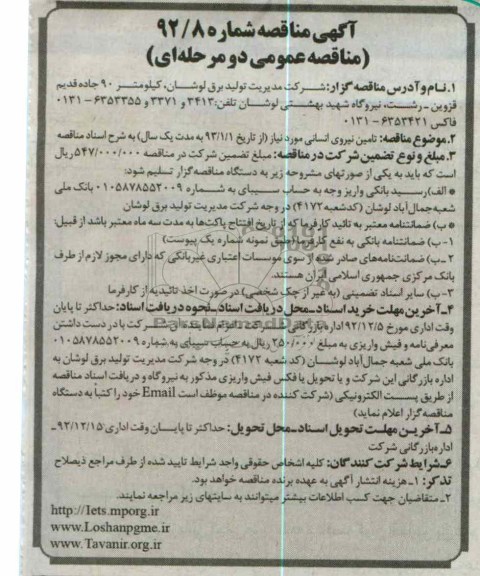 آگهی مناقصه شماره ۹۲/۸
(مناقصه عمومی دو مرحله‌ای)
۱ـ نام و آدرس مناقصه گزار: شرکت مدیریت تولید برق لوشان، کیلومتر ۹۰ جاده قدیم
قزوین ـ رشت، نیروگاه شهید بهشتی لوشان تلفن: ۳۴۱۳ و ۳۳۷۱ و ۶۳۵۳۳۵۵ - ۰۱۳۱
فاکس ۶۳۵۳۴۲۱ - ۰۱۳۱
۲ـ موضوع مناقصه: تامین نیروی انسانی مورد نیاز (از تاریخ ۹۳/۱/۱ به مدت یک سال) به شرح اسناد مناقصه
۳ـ مبلغ و نوع تضمین شرکت در مناقصه: مبلغ تضمین شرکت در مناقصه ۵۴۷/۰۰۰/۰۰۰ ریال
است که باید به یکی از صورتهای مشروحه زیر به دستگاه مناقصه گزار تسلیم شود:
* الف) رسید بانکی واریز وجه به حساب سیبای به شماره ۰۱۰۵۸۷۸۵۵۲۰۰۹ بانک ملی
شعبه جمال‌آباد لوشان (کدشعبه ۴۱۷۲) در وجه شرکت مدیریت تولید برق لوشان
* ب) ضمانتنامه معتبر به تائید کارفرما که از تاریخ افتتاح پاکت‌ها به مدت سه ماه معتبر باشد از قبیل:
۱- ب) ضمانتنامه بانکی به نفع کارفرما (طبق نمونه شماره یک پیوست)
۲- ب) ضمانتنامه‌های صادر شده از سوی موسسات اعتباری غیربانکی که دارای مجوز لازم از طرف
بانک مرکزی جمهوری اسلامی ایران هستند.
۳- ب) سایر اسناد تضمینی (به غیر از چک شخصی) در صورت اخذ تائیدیه از کارفرما
۴ـ آخرین مهلت خرید اسناد ـ محل دریافت اسناد ـ نحوه دریافت اسناد: حداکثر تا پایان
وقت اداری مورخ ۹۲/۱۲/۵ اداره بازرگانی شرکت ـ اعزام نماینده شرکت با در دست داشتن
معرفی‌نامه و فیش واریزی به مبلغ ۲۵۰/۰۰۰ ریال به حساب سیبای به شماره ۰۱۰۵۸۷۸۵۵۲۰۰۹
بانک ملی شعبه جمال‌آباد لوشان (کد شعبه ۴۱۷۲) در وجه شرکت مدیریت تولید برق لوشان به
اداره بازرگانی این شرکت و یا تحویل یا فکس فیش واریزی مذکور به نیروگاه و دریافت اسناد مناقصه
از طریق پست الکترونیکی (شرکت کننده در مناقصه موظف است Email خود را کتباً به دستگاه
مناقصه گزار اعلام نماید)
۵ـ آخرین مهلت تحویل اسناد ـ محل تحویل: حداکثر تا پایان وقت اداری ۹۲/۱۲/۱۵ ـ
اداره بازرگانی شرکت
۶ـ شرایط شرکت کنندگان: کلیه اشخاص حقوقی واجد شرایط تایید شده از طرف مراجع ذیصلاح
تذکر: ۱ـ هزینه انتشار آگهی به عهده برنده مناقصه خواهد بود.
۲ـ متقاضیان جهت کسب اطلاعات بیشتر میتوانند به سایتهای زیر مراجعه نمایند.
http://Iets.mporg.ir
www.Loshanpgme.ir
www.Tavanir.org.ir